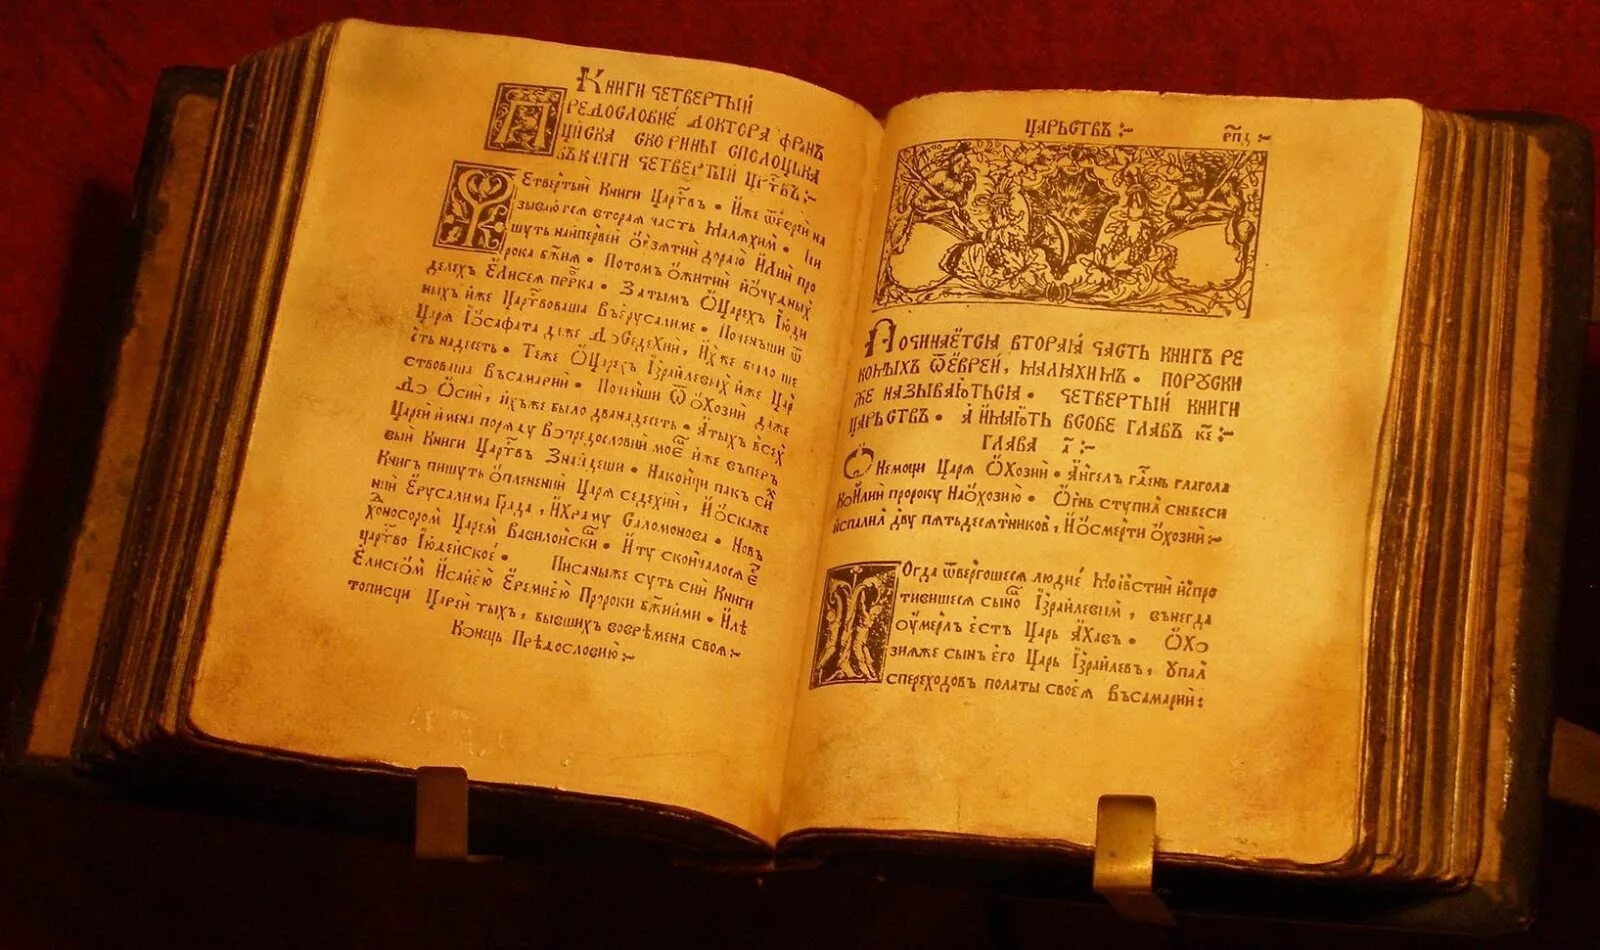 Книги четвертыи
Предословие доктора Фран
циска Скорины сполоцька
въкниги четвертыи цртвъ:~
Четвертыи Книги Цартвъ • Иже ѿеврей на
зываются вторая часть Малахим • Пи
шуть найпервей Овзятии дораю Илии про
рока бжия • Потомъ Ожитии Йочудных
делехъ Елисея пррка • Затымъ Оцарехъ Июди
ныхъ иже Цартвоваша Въерусалиме • Поченъши ѿ
Царя Иосафата даже До Седехии, Ихже было ше
сть надесеть • Теже Оцарехъ Израилевых иже Цар
ствоваша Въсамарии • Поченши ѿ Охозии даже
До Осии, ихъже было дванадесеть • Атыхъ всех
Царей имена поряду Вопредословии моем иже въперъ
выи Книги Цартвъ Знайдеши • Наконци пакъ сих
Книгъ пишуть Опленении Царя седехии, Йоскаже
нии Ерусалима Града, Ихраму Саломонова • Новъ
ходоносором Царем Вавилонски • Иту скончалося
цартво Июдейское • Писаныже суть сии Книги
Елисеом Исаиею Еремиею Пророки бжиими • Иле
тописци Царей тыхъ, бывшихъ вовремена своя:~
Конець Предословию:~
Царьствъ:~ рпц:~
Починаеться вторая часть книгъ ре
комыхъ ѿеврей, малахимъ • поруски
же называються • четвертыи книги
царьствъ • а имають всобе главъ ке:~
глава а:~
Онемоци Царя Охозии • Ангелъ гдень глагола
ко Илии пророку На Охозию • Огнь ступил снебеси
испалил дву пятьдесятников, Йосмерти охозии:~
Тогда ѿвергошеся людие Моивстии испро
тивишеся сыном Израилевим, вънегда
оумерлъ естъ Царь Ахавъ • Охо
зияже сынъ его Царь Израилевъ, упал
спереходовъ полаты своея Въсамарии: